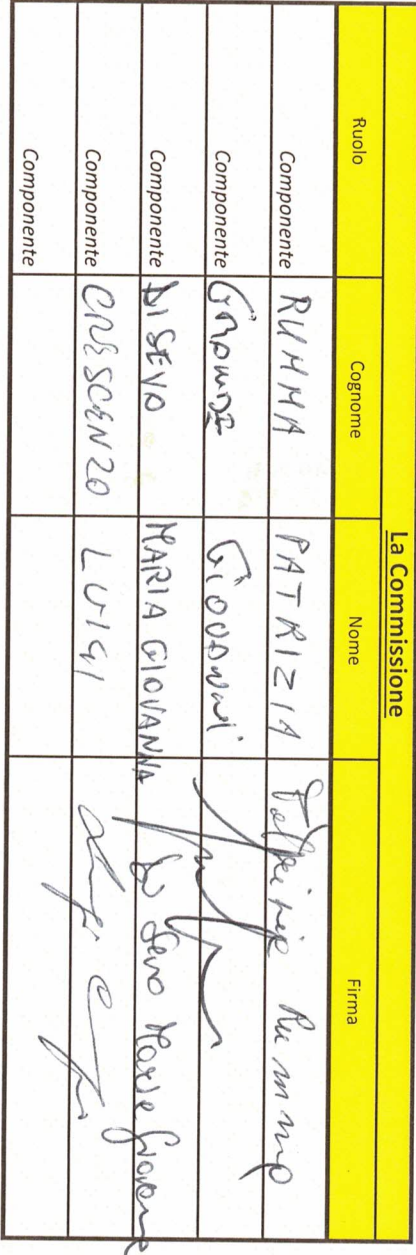 La Commissione
Ruolo Cognome Nome Firma
Componente RUMMA PATRIZIA Patrizia Rumma
Componente GRANDE GIOVANNI
Componente DI SEVO MARIA GIOVANNA Di Sevo Maria Giovanna
Componente CRESCENZO LUIGI
Componente